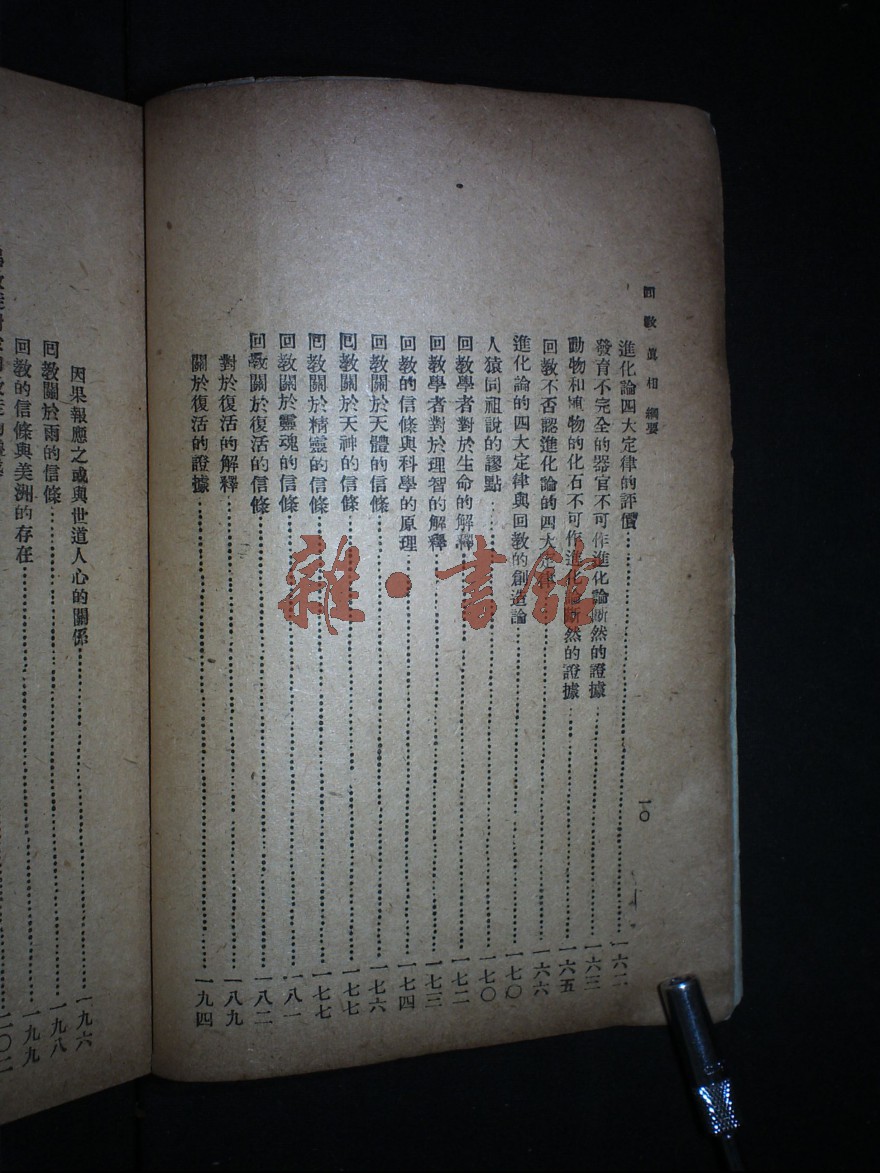 回教真相 綱要
一〇
進化論四大定律的評價……一六二
發育不完全的器官不可作進化論斷然的證據……一六三
動物和植物的化石不可作進化論斷然的證據……一六五
回教不否認進化論的四大定律……一六六
進化論的四大定律與回教的創造論……一七〇
人猿同祖說的謬點……一七〇
回教學者對於生命的解釋……一七二
回教學者對於理智的解釋……一七三
回教的信條與科學的原理……一七四
回教關於天體的信條……一七六
回教關於天神的信條……一七七
回教關於精靈的信條……一七七
回教關於靈魂的信條……一八一
回教關於復活的信條……一八二
對於復活的解釋……一八九
關於復活的證據……一九四
因果報應之或與世道人心的關係……一九六
回教關於雨的信條……一九八
回教的信條與美洲的存在……一九九
二〇二
雜·書館